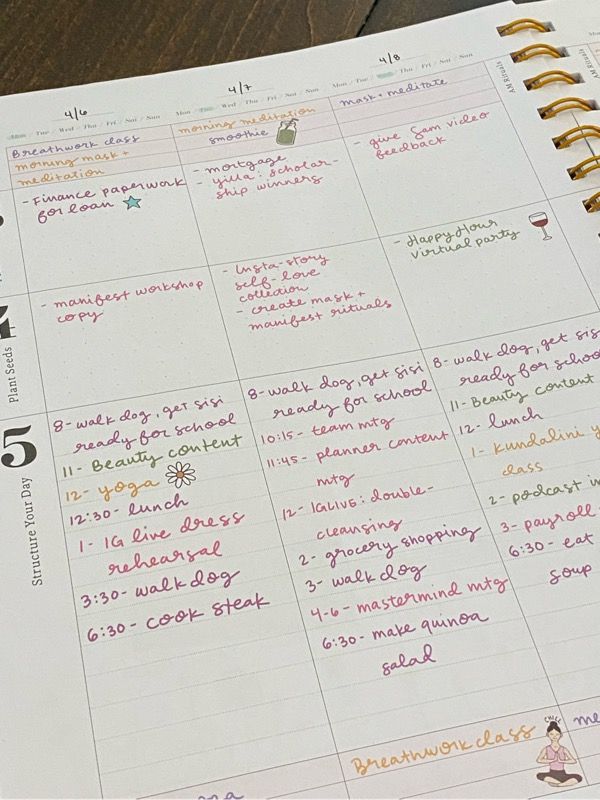 4/6
Mon / Tue / Wed / Thu / Fri / Sat / Sun
Breathwork class
morning mask +
meditation
- Finance paperwork
for loan
- manifest workshop
copy
8- walk dog, get sisi
ready for school
11- Beauty content
12- yoga
12:30- lunch
1- IG live dress
rehearsal
3:30- walk dog
6:30- cook steak
4/7
Mon / Tue / Wed / Thu / Fri / Sat / Sun
morning meditation
smoothie
- mortgage
- yilla: scholar-
ship winners
- Insta-story
self-love
collection
- create mask +
manifest rituals
8-walk dog, get sisi
ready for school
10:15- team mtg
11:45- planner content
mtg
12- IGLIVE: double-
cleansing
2- grocery shopping
3- walk dog
4-6- mastermind mtg
6:30- make quinoa
salad
Breathwork class
CHILL
4/8
Mon / Tue / Wed / Thu / Fri / Sat / Sun
mask + meditate
- give Sam video
feedback
- Happy Hour
virtual party
8- walk dog, get sis
ready for schoo
11- Beauty content
12- lunch
1- Kundalini y
class
2- podcast in
3- payroll
6:30- eat
soup
me
AM Rituals
AM Rituals
Plant Seeds
5
Structure Your Day